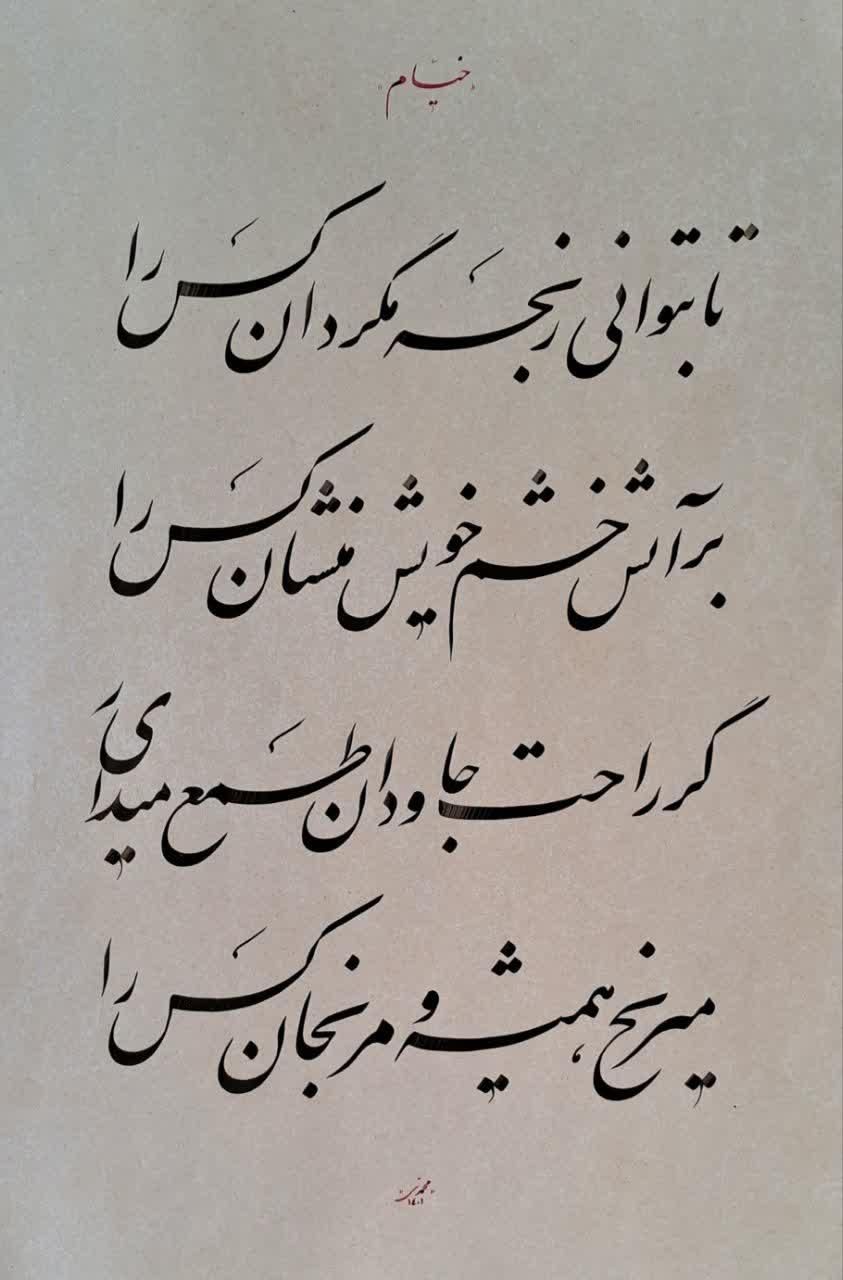 خیّام
تا بتوانی رنجه مگردان کس را
بر آتش خشم خویش منشان کس را
گر راحت جاودان طمع میداری
میرنج همیشه و مرنجان کس را
۱۴۰۱